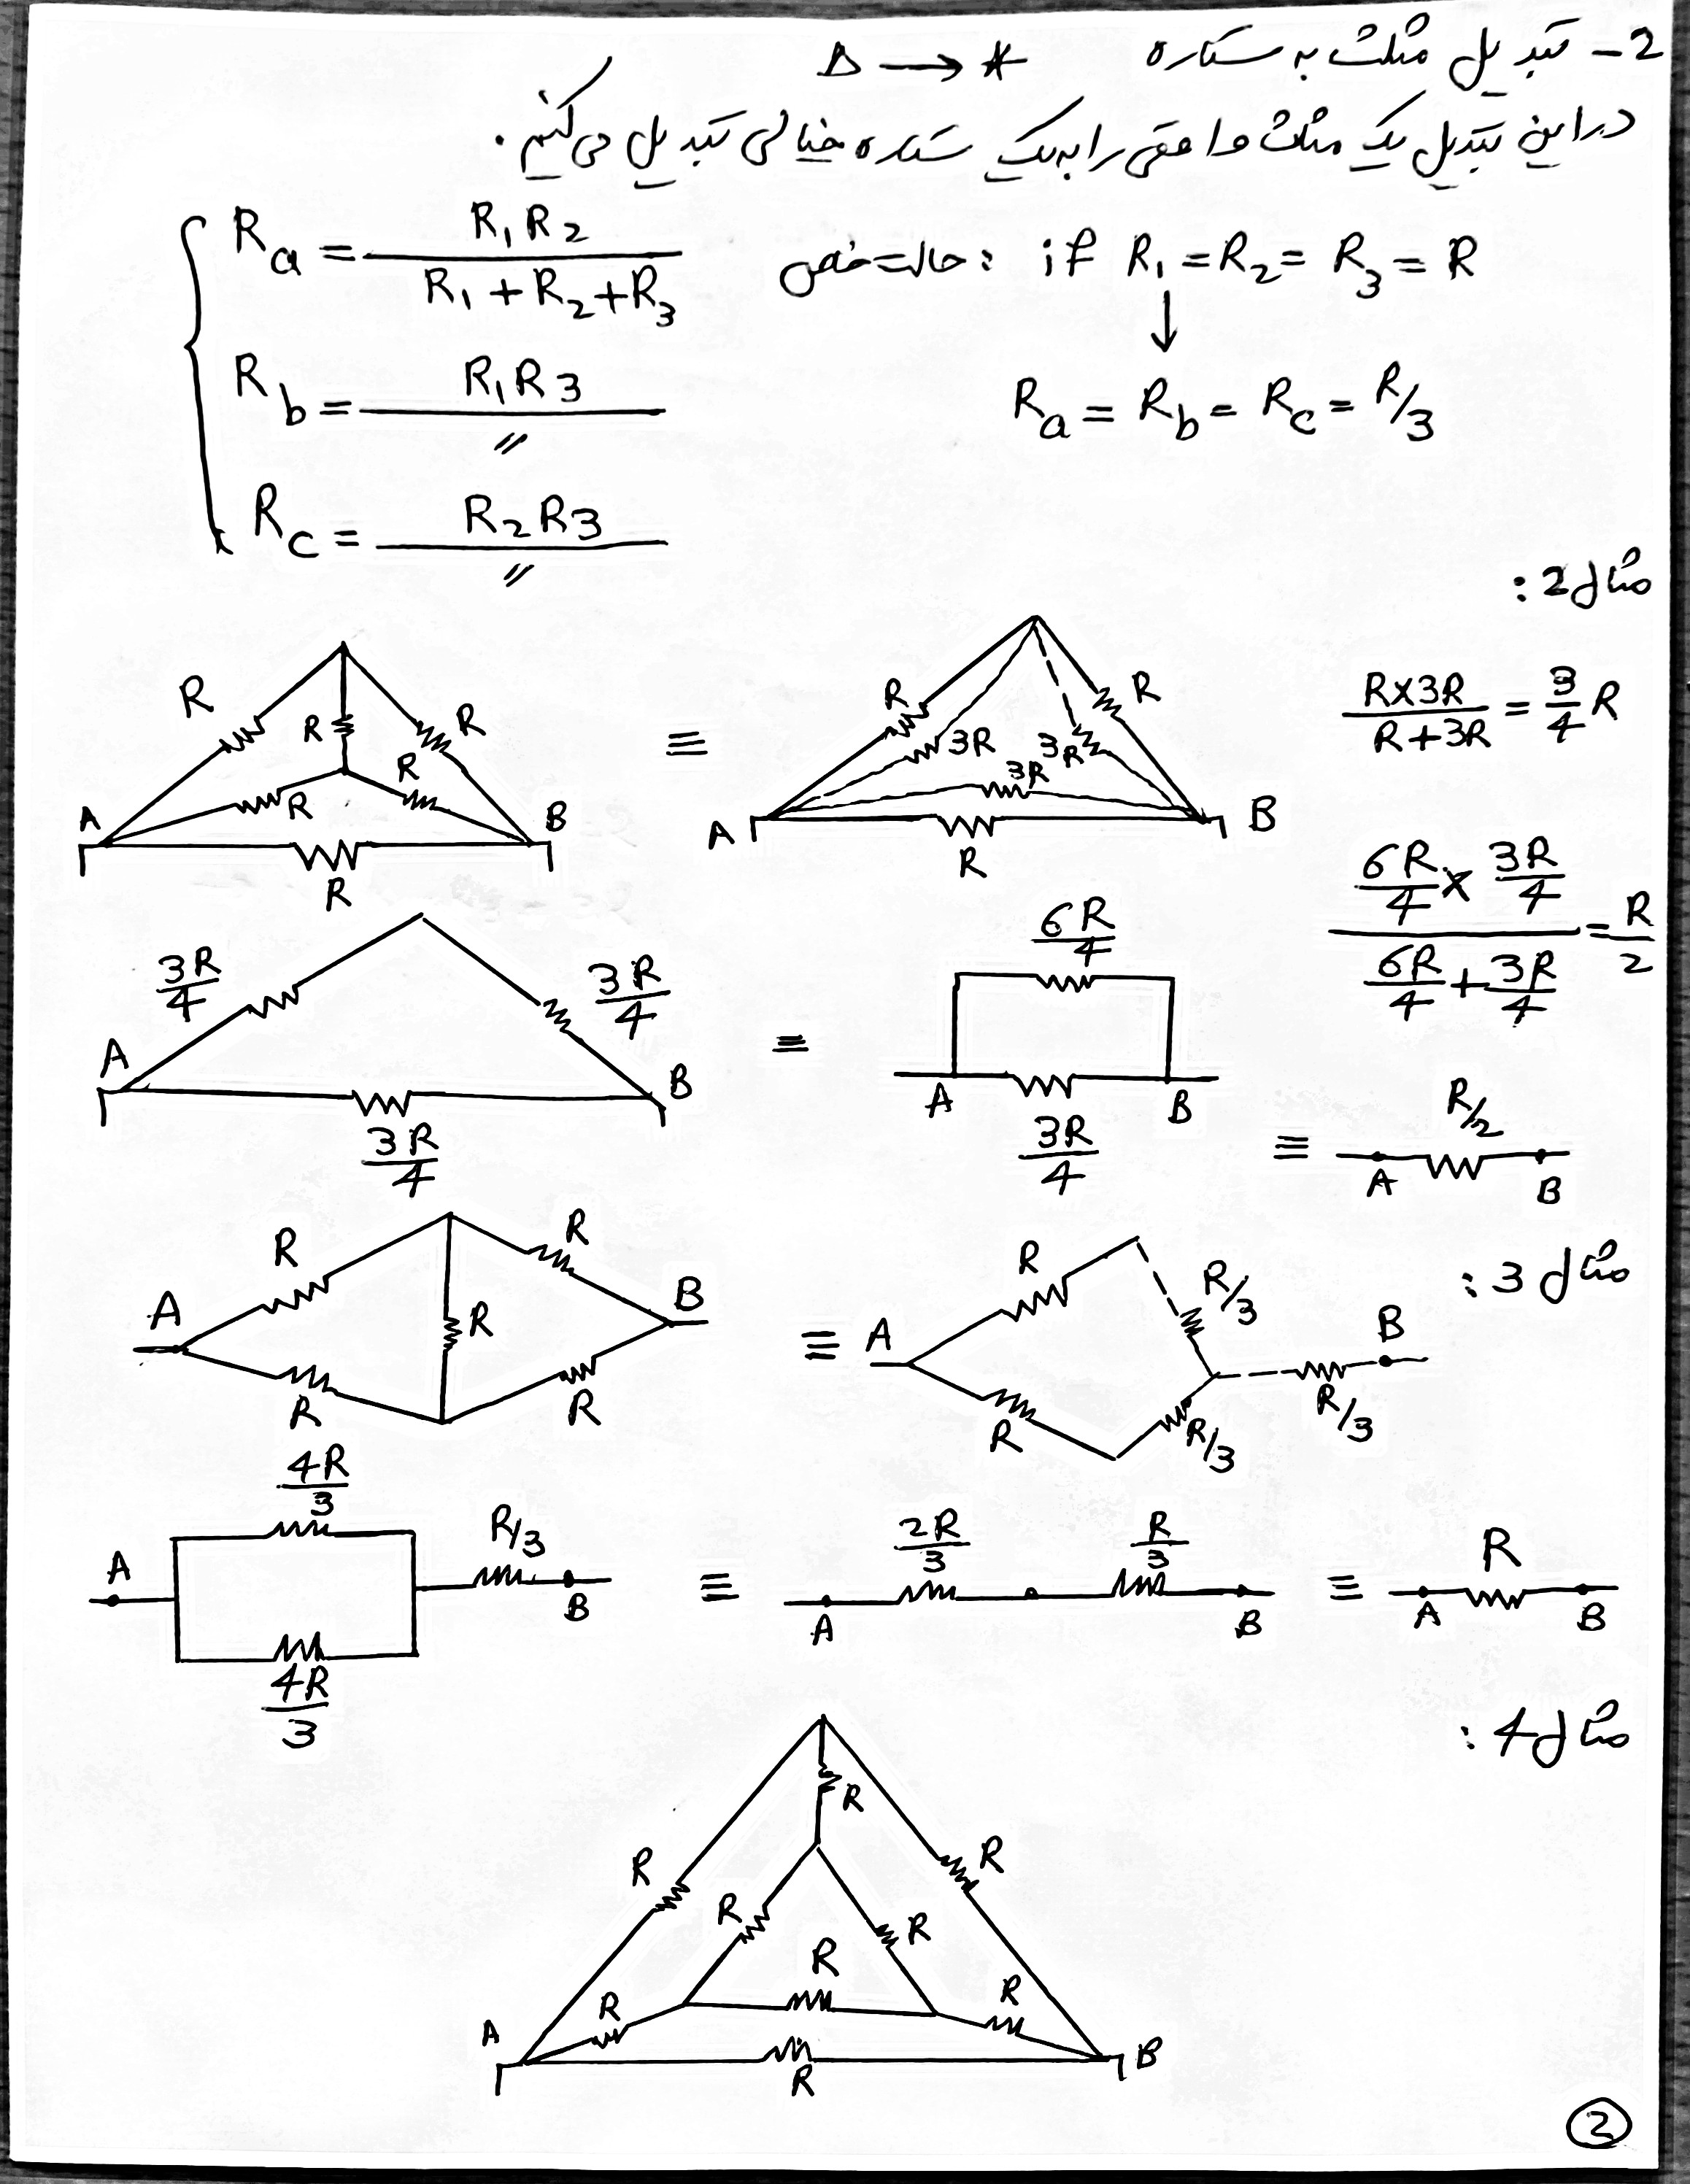 2- تبدیل مثلث به ستاره Δ → *
در این تبدیل یک مثلث واقعی را به یک ستاره خیالی تبدیل می کنیم.
Ra = R1R2 / R1+R2+R3
حالت خاص: if R1=R2=R3=R
↓
Rb = R1R3 / 〃
Ra = Rb = Rc = R/3
Rc = R2R3 / 〃
مثال 2:
R R R R R R A B
≡
R R 3R 3R 3R R A B
R×3R / R+3R = 3/4 R
3R/4 3R/4 A B 3R/4
≡
6R/4 A B 3R/4
6R/4 × 3R/4 / 6R/4 + 3R/4 = R/2
≡
R/2 A B
مثال 3:
A R R R R R B
≡
A R R/3 R R/3 R/3 B
A 4R/3 4R/3 R/3 B
≡
2R/3 R/3 A B
≡
R A B
مثال 4:
R
R R
R R
R
R R
A B
R
2